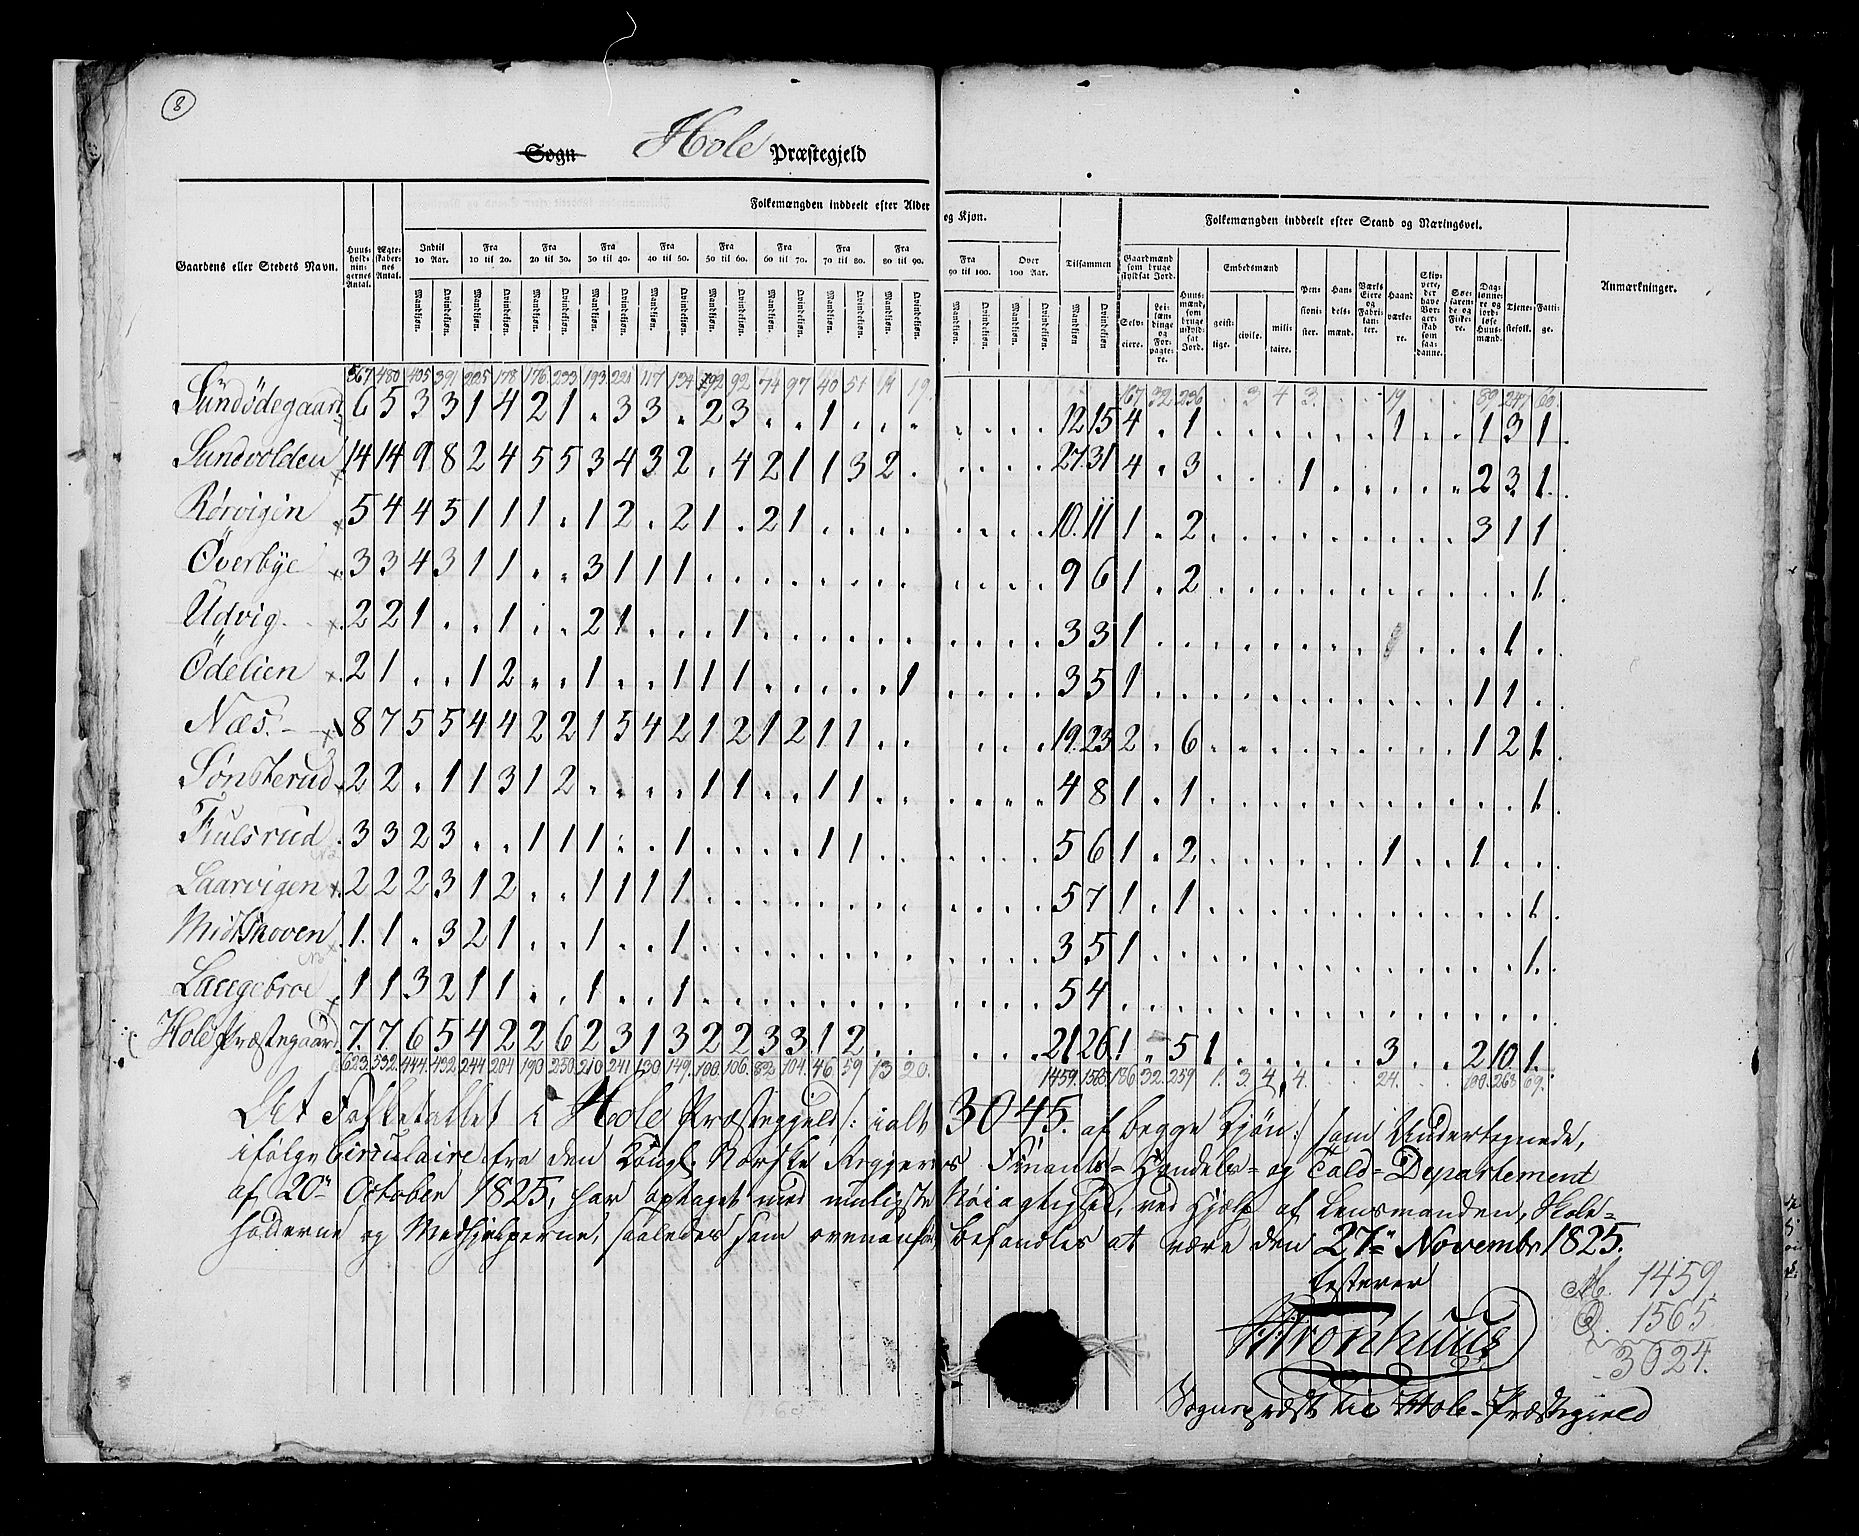 8
Sogn Hole Præstegjeld
Folkemængden inddeelt efter Alder og Kjøn.
Folkemængden inddeelt efter Stand og Næringsvei.
Gaardens eller Stedets Navn.
Huus-holdnin-gernes Antal.
Ægte-skaber-nes Antal.
Indtil 10 Aar.
Fra 10 til 20.
Fra 20 til 30.
Fra 30 til 40.
Fra 40 til 50.
Fra 50 til 60.
Fra 60 til 70.
Fra 70 til 80.
Fra 80 til 90.
Fra 90 til 100.
Over 100 Aar.
Tilsammen
Gaardmænd som bruge skyldsat Jord.
Embedsmænd
Anmærkninger.
Mandkiøn. Qvindekiøn.
Selv-eiere. Lei-lændinge og For-pagtere. Huus-mænd, som bruge uskyld-sat Jord. geist-lige. civile. mili-taire. Pen-sioni-ster. Han-dels-mænd. Værks Eiere og Fabri-kanter. Haand værke-re. Skip-pere, der have Bor-ger-skab som saa-danne. Søe-faren-de og Fiske-re. Dag-lønne-re og jord-løse Huus-mænd. Tiene-stefolk. Fatti-ge.
567 480 405 391 225 178 176 233 193 221 117 134 92 92 74 97 40 51 11 19 167 32 236 . 3 4 3 . . . 19 . . 89 247 60
Sundödegaard 6 5 3 3 1 4 2 1 . 3 3 . 2 3 . . 1 . . . . . . . 12 15 4 . 1 . . . . . . 1 . . 1 3 1
Sundvolden 14 14 9 8 2 4 5 5 3 4 3 2 . 4 2 1 1 3 2 . . . . . 27 31 4 . 3 . . . 1 . . . . . 2 3 1
Rörvigen 5 4 4 5 1 1 1 . 1 2 . 2 1 . 2 1 . . . . . . . . 10 11 1 . 2 . . . . . . . . . 3 1 1
Överbye 3 3 4 3 1 1 . . 3 1 1 1 . . . . . . . . . . . . 9 6 1 . 2 . . . . . . . . . . . 1
Udvig 2 2 1 . . 1 . . 2 1 . . . 1 . . . . . . . . . . 3 3 1 . . . . . . . . . . . . 1 .
Ödelien 2 1 . . 1 2 . . 1 . . 1 1 1 . . . . . 1 . . . . 3 5 1 . . . . . . . . . . . 1 1 .
Næs. 8 7 5 5 4 4 2 2 1 5 4 2 1 2 1 2 1 1 . . . . . 19 23 2 . 6 . . . . . . . . . 1 2 1
Sönsterud 2 2 . 1 1 3 1 2 . . . . 1 1 . . 1 1 . . . . . . 4 8 1 . 1 . . . . . . . . . . . 1
Fiulsrud 3 3 2 3 . . 1 1 1 . . 1 . . . . 1 1 . . . . . . 5 6 1 . 2 . . . . . . 1 . . 1 . .
Laarvigen 2 2 2 3 1 2 . . 1 1 1 1 . . . . . . . . . . . . 5 7 1 . 1 . . . . . . . . . . . 1
Midtskoven 1 1 . 3 2 1 . . 1 . . 1 . . . . . . . . . . . . 3 5 1 . . . . . . . . . . . . . 1
Langebroe 1 1 3 2 1 1 . . 1 . . 1 . . . . . . . . . . . . 5 4 . . . . . . . . . . . . . . .
Hole Præstegaard 7 7 6 5 4 2 2 6 2 3 1 3 2 2 3 3 1 2 . . . . . 21 26 1 . 5 1 . . . . . 3 . . 2 10 1
623 532 444 432 244 204 190 250 210 241 130 149 100 106 82 104 46 59 13 20 1459 1565 186 32 259 1 3 4 4 24 100 268 69
Det Folketallet i Hole Præstegjeld /: ialt 3045. af begge Kjön :/ som Undertegnede,
ifölge Circulaire fra den Kongl. Norske Regjerings Finants- Handels- og Told-Departement
af 20de October 1825, har optaget med muligste Nöiagtighed, ved Hjælp af Lensmanden, Skole-
holderne og Medhjelperne, saaledes som ovenanfört befandtes at være den 27de Novembr 1825.
testerer
M. 1459.
Q. 1565
3024.
Sogneprest til Hole-Præstegield